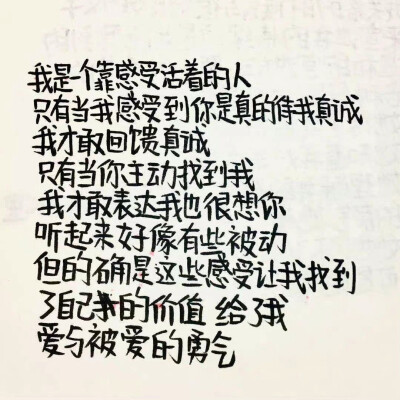 我是一个靠感受活着的人
只有当我感受到你是真的待我真诚
我才敢回馈真诚
只有当你主动找到我
我才敢表达我也很想你
听起来好像有些被动
但的确是这些感受让我找到
了自己的价值 给了我
爱与被爱的勇气